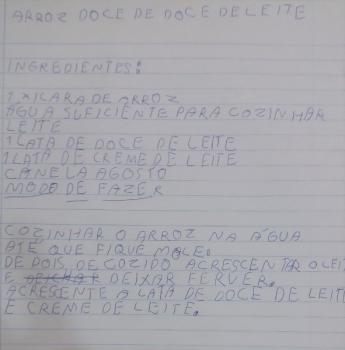 ARROZ DOCE DE DOCE DE LEITE
INGREDIENTES:
1 XICARA DE ARROZ
AGUA SUFICIENTE PARA COZINHAR
LEITE
1 LATA DE DOCE DE LEITE
1 LATA DE CREME DE LEITE
CANELA AGOSTO
MODO DE FAZER
COZINHAR O ARROZ NA ÁGUA
ATÉ QUE FIQUE MOLE.
DEPOIS DE COZIDO ACRESCENTAR O LEIT
E DEIXAR FERVER.
ACRESENTE A LATA DE DOCE DE LEIT
E CREME DE LEITE.